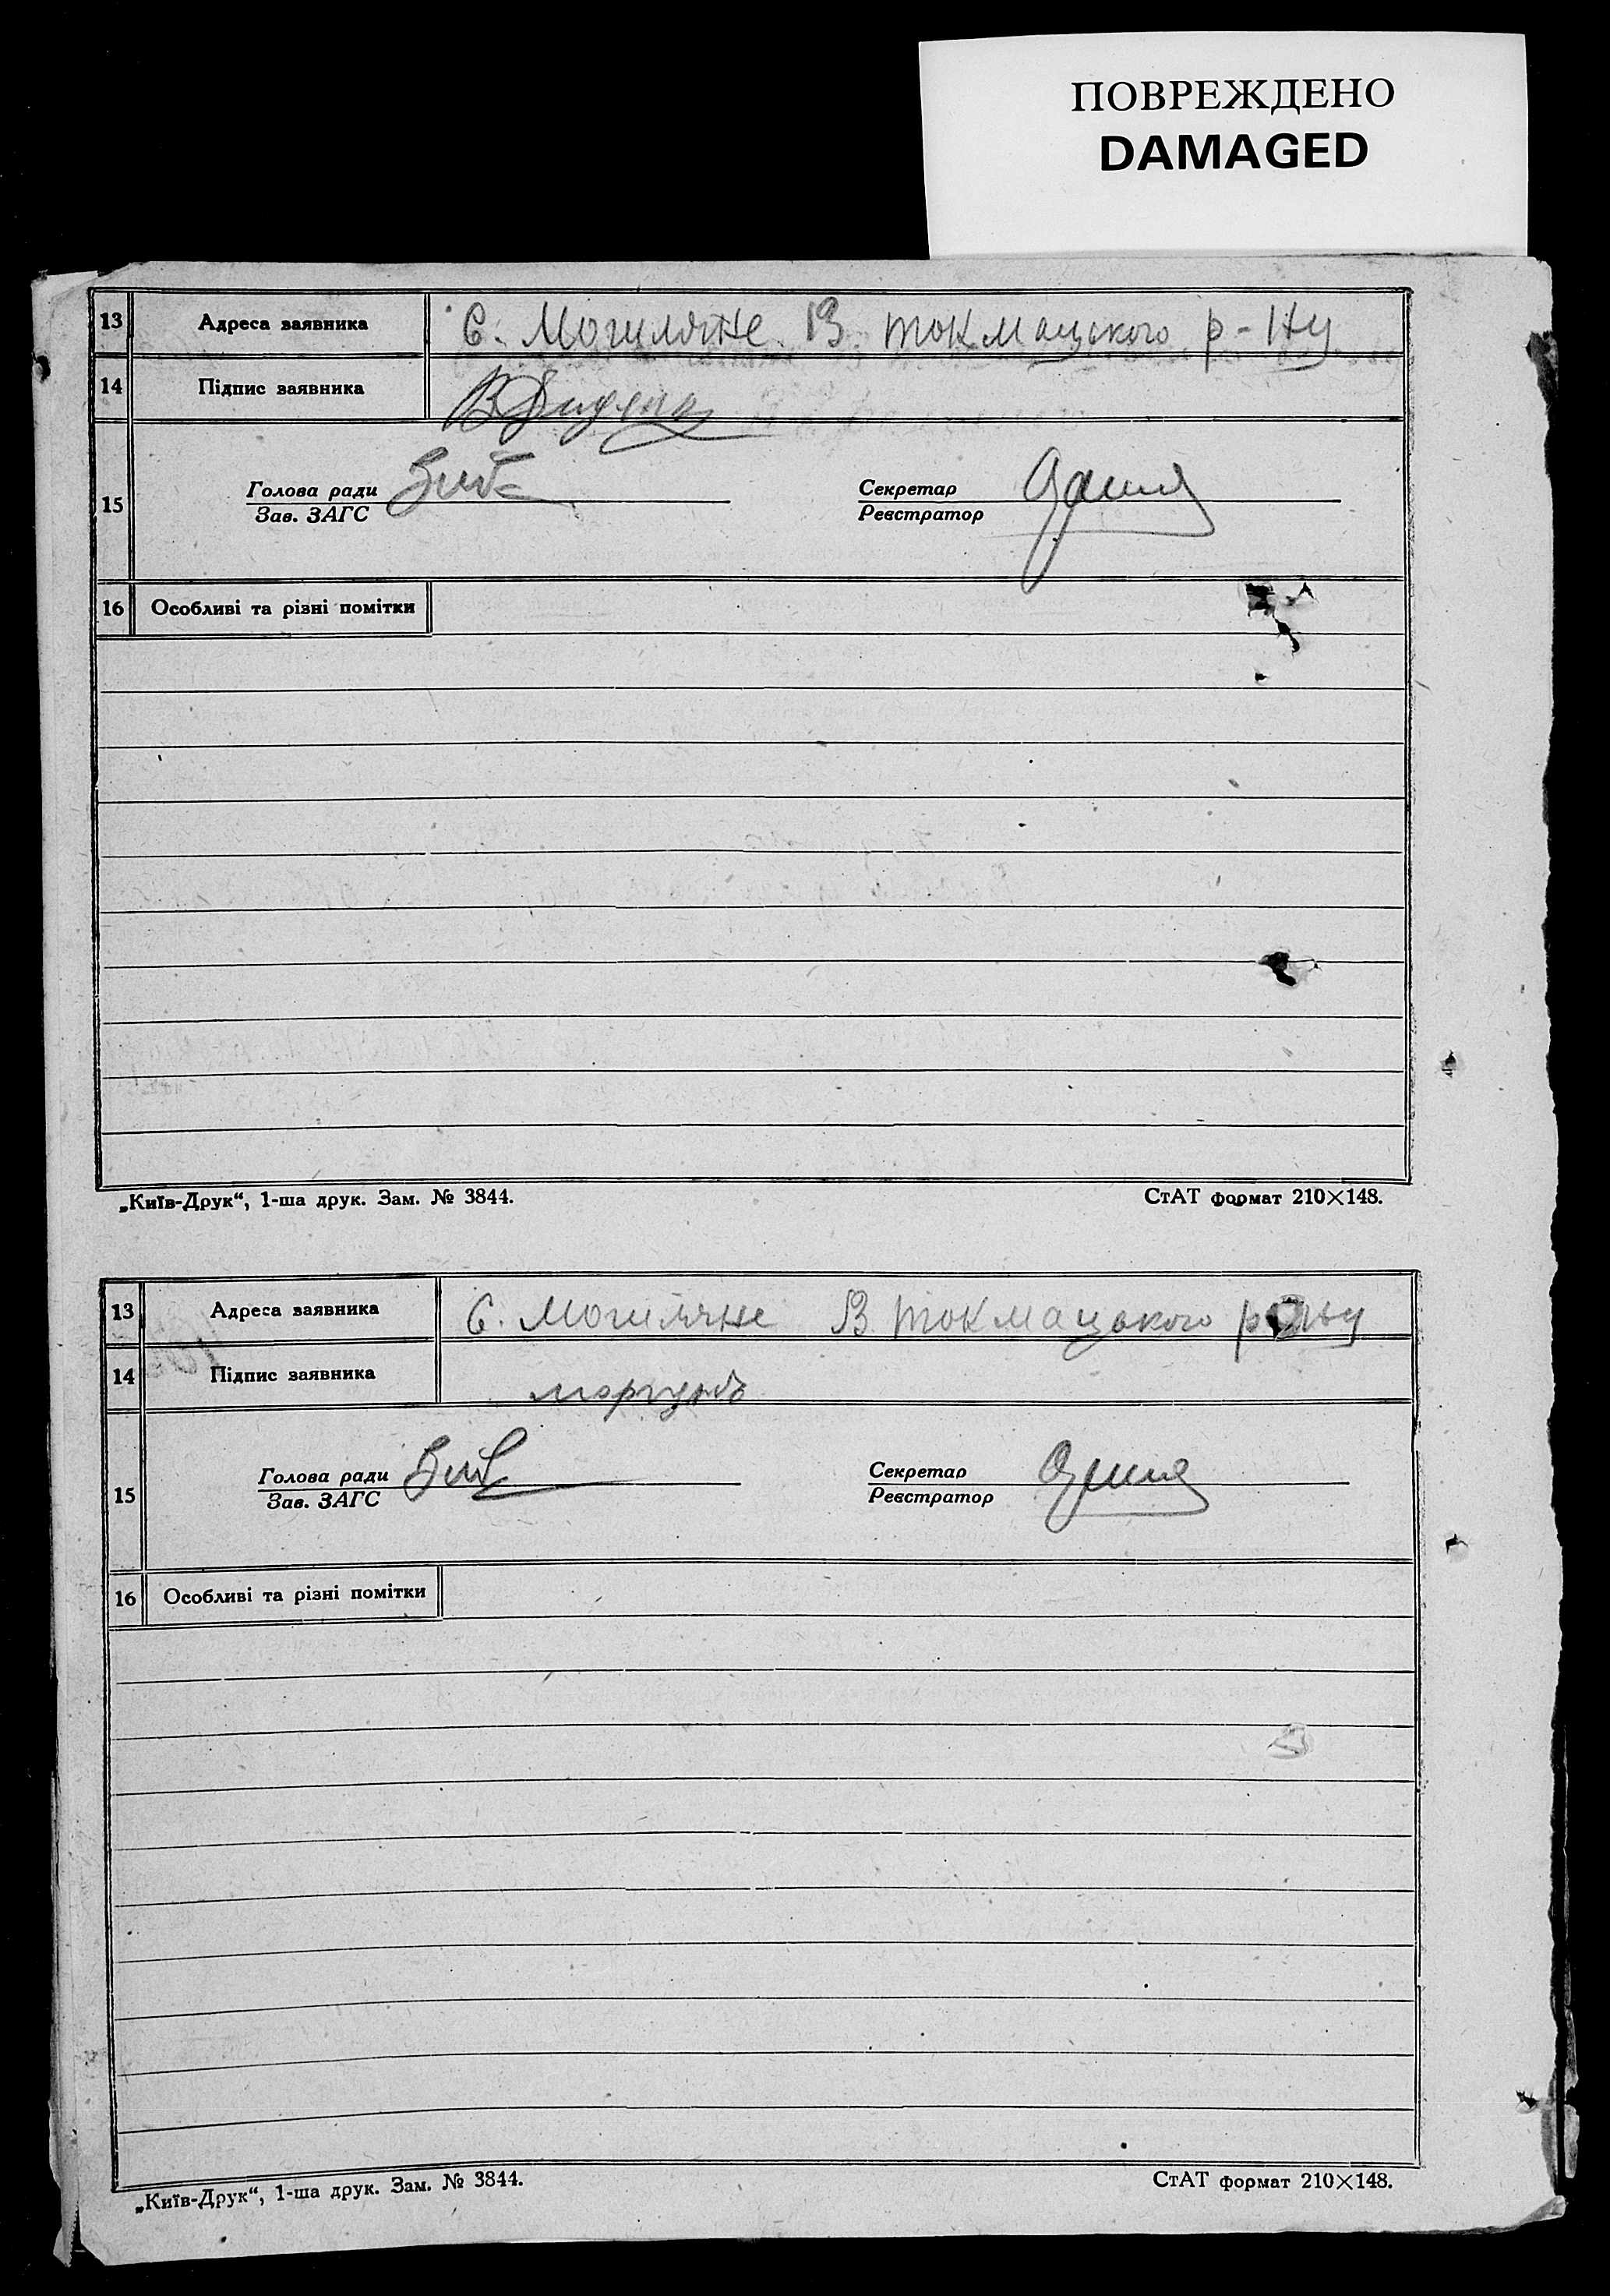 ПОВРЕЖДЕНО
DAMAGED
13 Адреса заявника С. Могиляне В. Токмацького р-ну
14 Підпис заявника
15 Голова ради Секретар
Зав. ЗАГС Реєстратор
16 Особливі та різні помітки
„Київ-Друк“, 1-ша друк. Зам. № 3844. СтАТ формат 210×148.
13 Адреса заявника С. Могиляне В. Токмацького р-ну
14 Підпис заявника моргунь
15 Голова ради Секретар
Зав. ЗАГС Реєстратор
16 Особливі та різні помітки
„Київ-Друк“, 1-ша друк. Зам. № 3844. СтАТ формат 210×148.